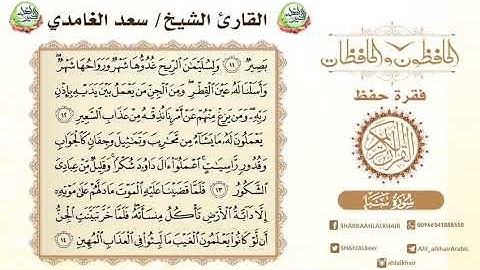 القارئ الشيخ / سعد الغامدي
بَصِيرٌ ١١ وَلِسُلَيْمَٰنَ ٱلرِّيحَ غُدُوُّهَا شَهْرٌ وَرَوَاحُهَا شَهْرٌ
وَأَسَلْنَا لَهُۥ عَيْنَ ٱلْقِطْرِ وَمِنَ ٱلْجِنِّ مَن يَعْمَلُ بَيْنَ يَدَيْهِ بِإِذْنِ
رَبِّهِۦ وَمَن يَزِغْ مِنْهُمْ عَنْ أَمْرِنَا نُذِقْهُ مِنْ عَذَابِ ٱلسَّعِيرِ ١٢
يَعْمَلُونَ لَهُۥ مَا يَشَآءُ مِن مَّحَٰرِيبَ وَتَمَٰثِيلَ وَجِفَانٍ كَٱلْجَوَابِ
وَقُدُورٍ رَّاسِيَٰتٍ ٱعْمَلُوٓا۟ ءَالَ دَاوُۥدَ شُكْرًا وَقَلِيلٌ مِّنْ عِبَادِىَ
ٱلشَّكُورُ ١٣ فَلَمَّا قَضَيْنَا عَلَيْهِ ٱلْمَوْتَ مَا دَلَّهُمْ عَلَىٰ مَوْتِهِۦٓ
إِلَّا دَآبَّةُ ٱلْأَرْضِ تَأْكُلُ مِنسَأَتَهُۥ فَلَمَّا خَرَّ تَبَيَّنَتِ ٱلْجِنُّ
أَن لَّوْ كَانُوا۟ يَعْلَمُونَ ٱلْغَيْبَ مَا لَبِثُوا۟ فِى ٱلْعَذَابِ ٱلْمُهِينِ ١٤
الحافظون والحافظات
فقرة حفظ
القرآن الكريم
سورة سبأ
SHABKAAHLALKHAIR
00966541888550
Ahl_alkhairArabic
ahlalkhair